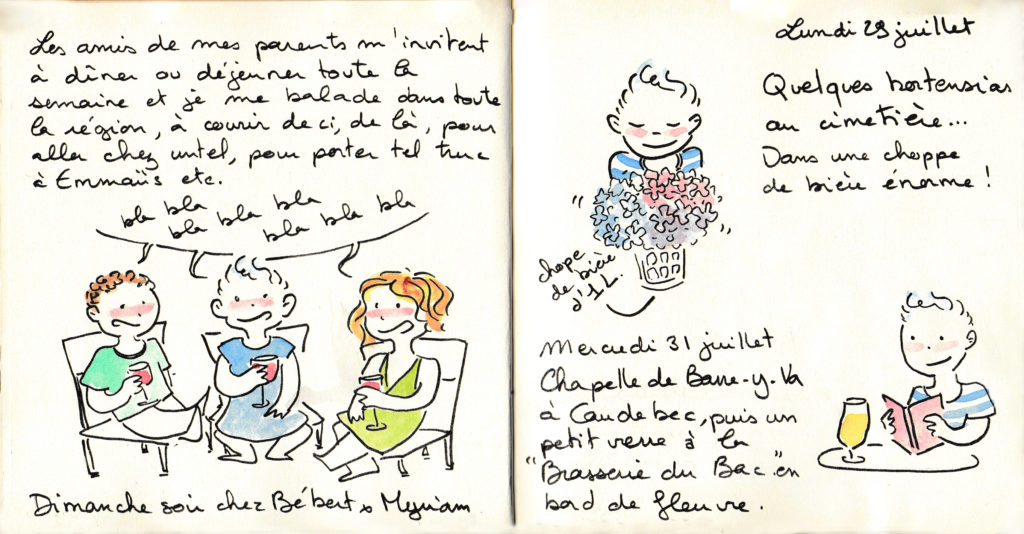 Les amis de mes parents m'invitent
à dîner ou déjeuner toute la
semaine et je me balade dans toute
la région, à courir de ci, de là, pour
aller chez untel, pour porter tel truc
à Emmaüs etc.
bla bla
bla bla bla
bla bla bla
Dimanche soir chez Bébert & Myriam
Lundi 29 juillet
Quelques hortensias
au cimetière...
Dans une choppe
de bière énorme !
chope
de bière
d'1L.
Mercredi 31 juillet
Chapelle de Barre-y-Va
à Caudebec, puis un
petit verre à la
"Brasserie du Bac" en
bord de fleuve.